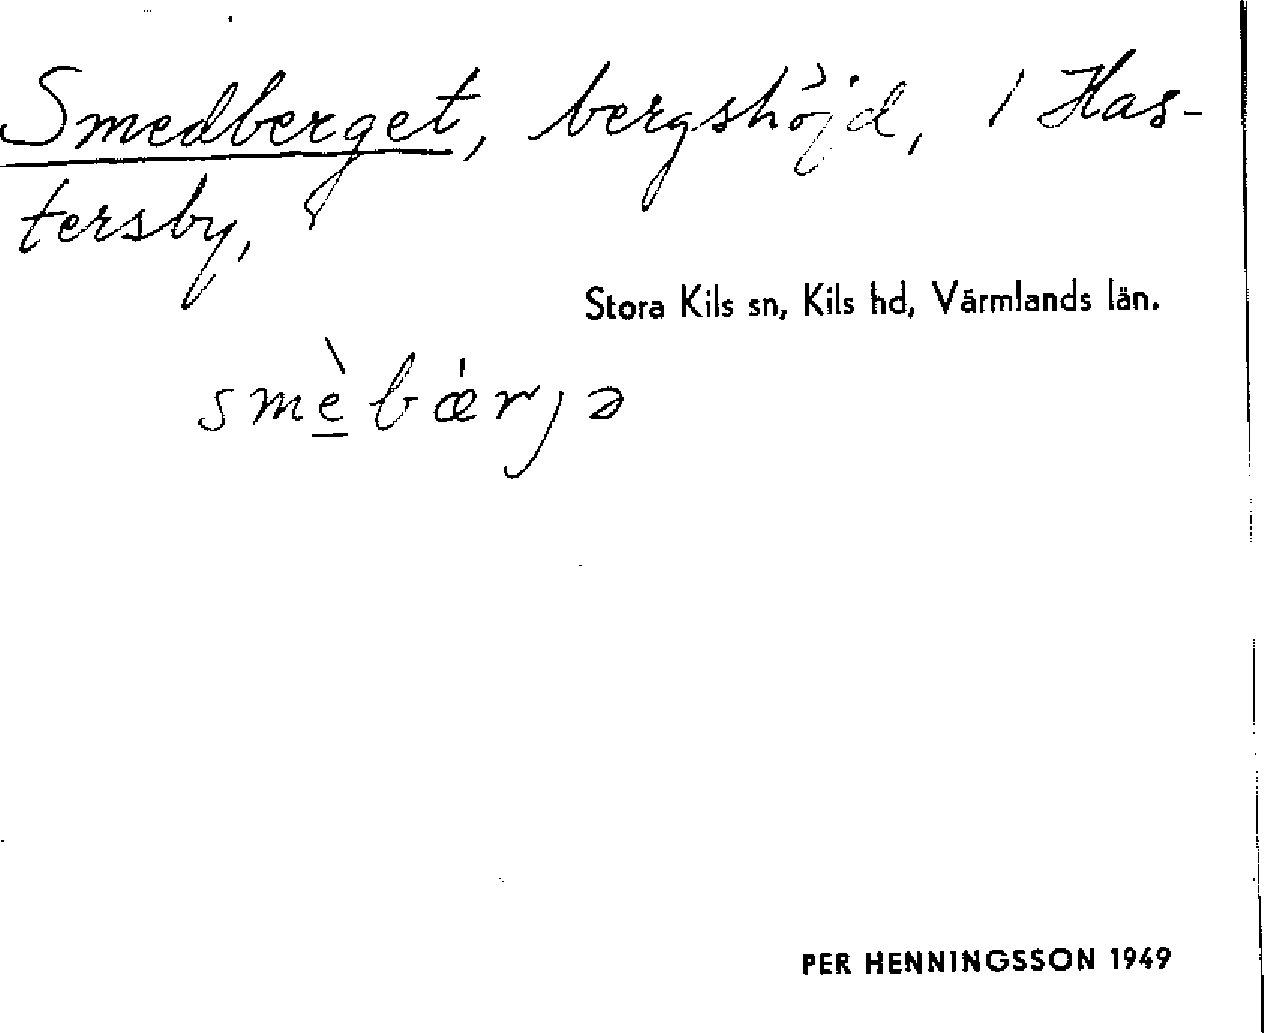 Smedberget, bergshöjd, i Has-
tersby,
Stora Kils sn, Kils hd, Värmlands län.
smè̠bǽrjə
PER HENNINGSSON 1949